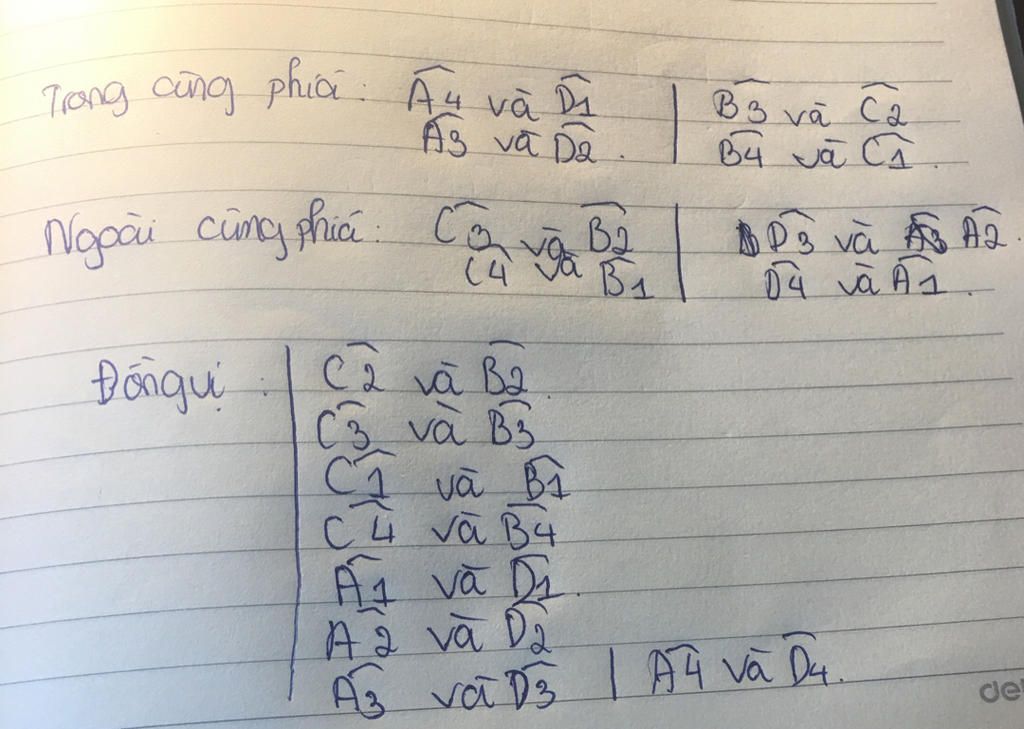 Trong cùng phía: A4 và D1 | B3 và C2
A3 và D2. | B4 và C1.
Ngoài cùng phía: C3 và B2 | D3 và A2.
C4 và B1 | D4 và A1.
Đồng vị: | C2 và B2.
C3 và B3
C1 và B1
C4 và B4
A1 và D1.
A2 và D2
A3 và D3 | A4 và D4.
de